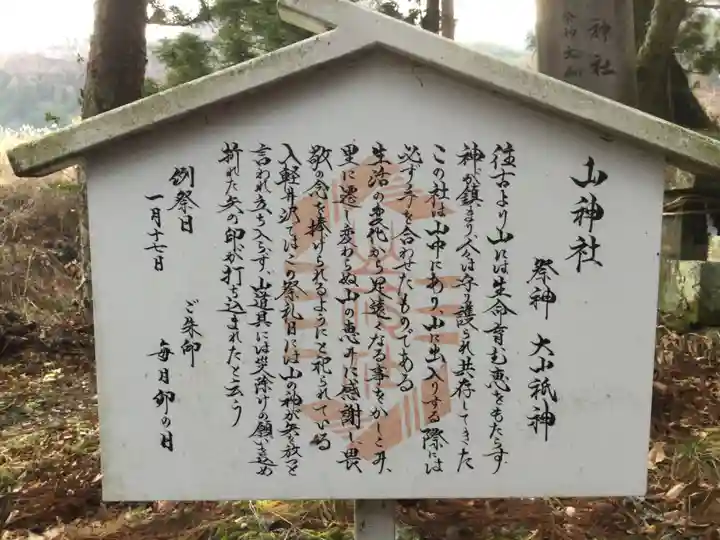 山神社
祭神 大山祇神
往古より山には生命育む恵をもたらす
神が鎮まり、人々は守り護られ共存してきた
この社は山中にあり、山に出入りする際には
必ず手を合わせたものである
生活の変化から足遠くなる事をかしこみ、
里に遷し、変わらぬ山の恵みに感謝し、畏
敬の念を捧げられるようにと祀られている
入軽井沢ではこの祭礼日には山の神が矢を放つと
言われ立ち入らず、山道具には災除けの願を込め
折れた矢の印が打ち込まれたと云う
例祭日
一月十七日
ご朱印
毎月卯の日
神社